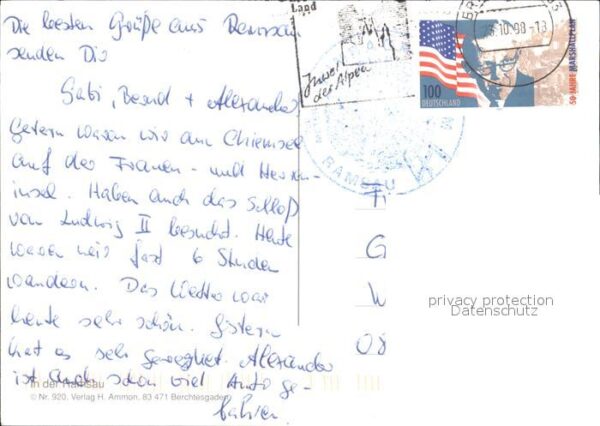 Die besten Grüße aus Ramsau
senden Dir
Gabi, Bernd + Alexander
Gestern waren wir am Chiemsee
auf der Frauen- und Herren-
insel. Haben auch das Schloß
von Ludwig II besucht. Heute
waren wir fast 6 Stunden
wandern. Das Wetter war
heute sehr schön. Gestern
hat es sehr geregnet. Alexander
ist auch schon viel Auto ge-
fahren
In der Ramsau
© Nr. 920, Verlag H. Ammon, 83 471 Berchtesgaden
Land
Juwel
der Alpen
RAMSAU
10.98-18
100
DEUTSCHLAND
50 JAHRE MARSHALLPLAN
G
W
08
privacy protection
Datenschutz